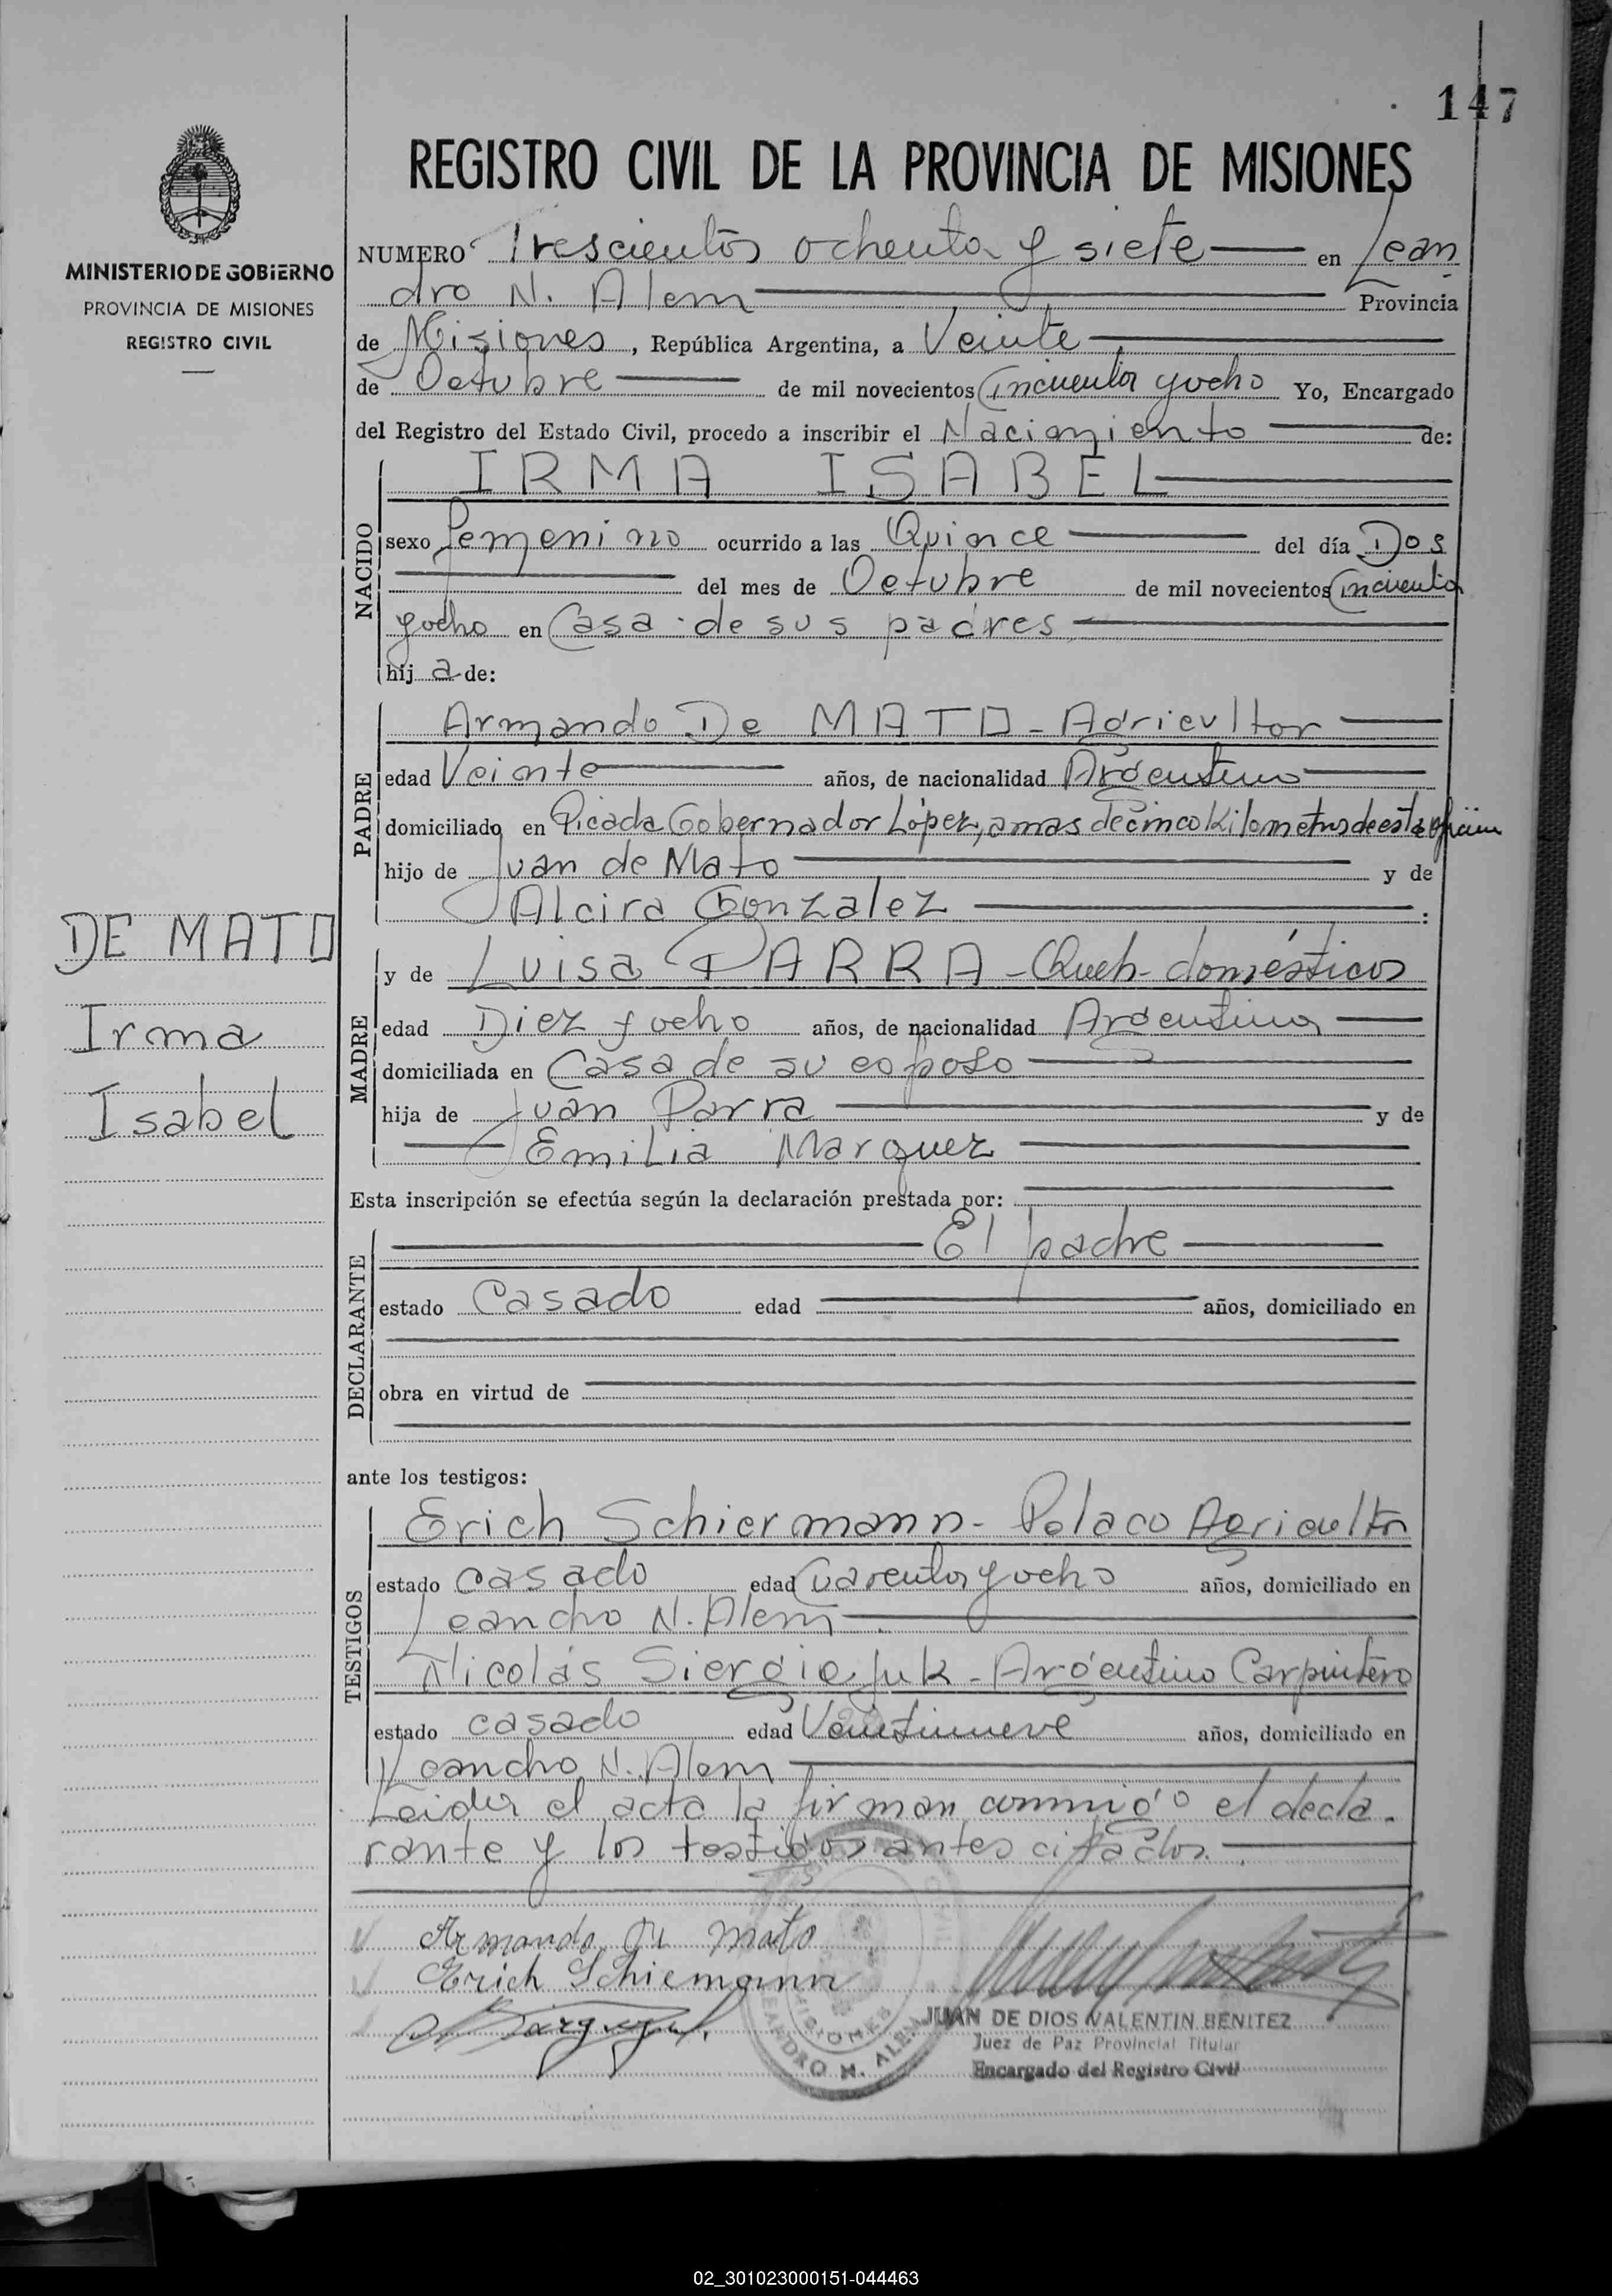 147
REGISTRO CIVIL DE LA PROVINCIA DE MISIONES
MINISTERIO DE GOBIERNO
PROVINCIA DE MISIONES
REGISTRO CIVIL
NUMERO Trescientos ochenta y siete en Lean
dro N. Alem Provincia
de Misiones, República Argentina, a Veinte
de Octubre de mil novecientos Cincuenta y ocho Yo, Encargado
del Registro del Estado Civil, procedo a inscribir el Nacimiento de:
NACIDO
IRMA ISABEL
sexo femenino ocurrido a las Quince del día Dos
del mes de Octubre de mil novecientos Cincuenta
y ocho en Casa de sus padres
hija de:
PADRE
Armando De MATO - Agricultor
edad Veinte años, de nacionalidad Argentino
domiciliado en Picada Gobernador López, a mas de cinco kilometros de esta oficina
hijo de Juan de Mato y de
Alcira Gonzalez :
DE MATO
Irma
Isabel
MADRE
y de Luisa PARRA - Queh- domésticos
edad Diez y ocho años, de nacionalidad Argentina
domiciliada en Casa de su esposo
hija de Juan Parra y de
Emilia Marquez
Esta inscripción se efectúa según la declaración prestada por:
DECLARANTE
El padre
estado Casado edad años, domiciliado en
obra en virtud de
ante los testigos:
TESTIGOS
Erich Schiermann - Polaco Agricultor
estado casado edad Cuarenta y ocho años, domiciliado en
Leandro N. Alem
Nicolás Siergiejuk - Argentino Carpintero
estado casado edad Veintinueve años, domiciliado en
Leandro N. Alem
Leida el acta la firman conmigo el decla-
rante y los testigos antes citados.
Armando De Mato
Erich Schiemann
MISIONES
LEANDRO N. ALEM
JUAN DE DIOS VALENTIN BENITEZ
Juez de Paz Provincial Titular
Encargado del Registro Civil
02_301023000151-044463